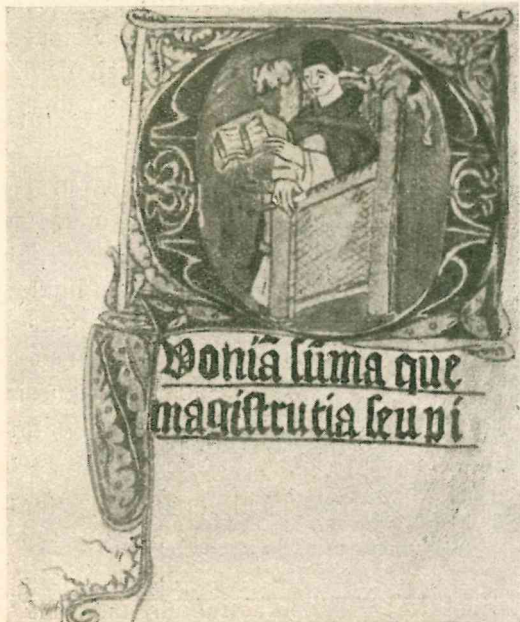 QVoniā ſūma que
magiſtrutia ſeu pi